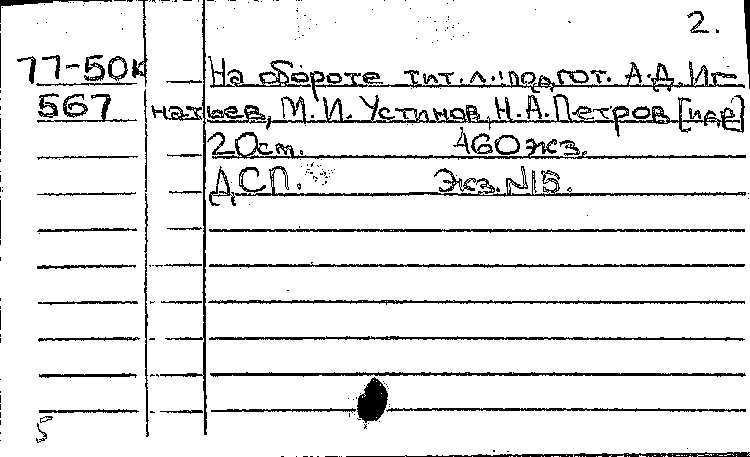 2.
77-50к На обороте тит. л.: подгот. А.Д. Иг-
567 натьев, М.И. Устинов, Н.А. Петров [и др]
20см. 460 экз.
ДСП. Экз. N15.
5